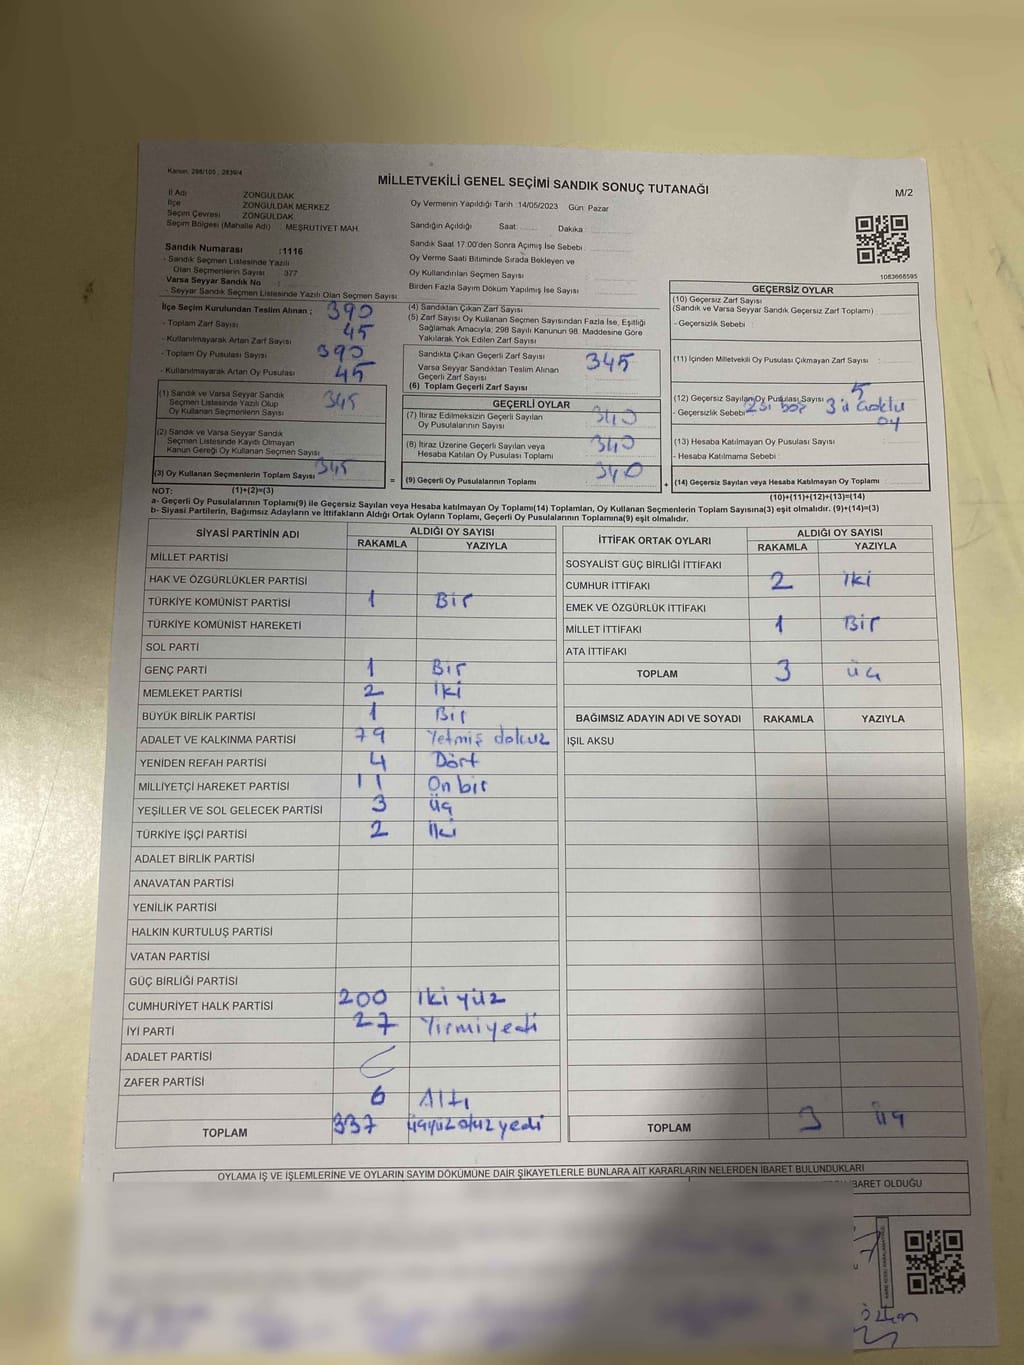 Kanun; 298/105 ; 2839/4
MİLLETVEKİLİ GENEL SEÇİMİ SANDIK SONUÇ TUTANAĞI
M/2
İl Adı ZONGULDAK
İlçe ZONGULDAK MERKEZ
Seçim Çevresi ZONGULDAK
Seçim Bölgesi (Mahalle Adı) MEŞRUTİYET MAH.
Sandık Numarası :1116
- Sandık Seçmen Listesinde Yazılı
Olan Seçmenlerin Sayısı 377
Varsa Seyyar Sandık No :
- Seyyar Sandık Seçmen Listesinde Yazılı Olan Seçmen Sayısı
İlçe Seçim Kurulundan Teslim Alınan ; 390
- Toplam Zarf Sayısı
- Kullanılmayarak Artan Zarf Sayısı 45
- Toplam Oy Pusulası Sayısı 390
- Kullanılmayarak Artan Oy Pusulası 45
(1) Sandık ve Varsa Seyyar Sandık
Seçmen Listesinde Yazılı Olup
Oy Kullanan Seçmenlerin Sayısı 345
(2) Sandık ve Varsa Seyyar Sandık
Seçmen Listesinde Kayıtlı Olmayan
Kanun Gereği Oy Kullanan Seçmen Sayısı
(3) Oy Kullanan Seçmenlerin Toplam Sayısı 345
(1)+(2)=(3)
Oy Vermenin Yapıldığı Tarih :14/05/2023 Gün: Pazar
Sandığın Açıldığı Saat Dakika
Sandık Saat 17:00'den Sonra Açımış İse Sebebi :
Oy Verme Saati Bitiminde Sırada Bekleyen ve
Oy Kullandırılan Seçmen Sayısı :
Birden Fazla Sayım Döküm Yapılmış İse Sayısı :
(4) Sandıktan Çıkan Zarf Sayısı
(5) Zarf Sayısı Oy Kullanan Seçmen Sayısından Fazla İse, Eşitliği
Sağlamak Amacıyla; 298 Sayılı Kanunun 98. Maddesine Göre
Yakılarak Yok Edilen Zarf Sayısı
Sandıkta Çıkan Geçerli Zarf Sayısı 345
Varsa Seyyar Sandıktan Teslim Alınan
Geçerli Zarf Sayısı
(6) Toplam Geçerli Zarf Sayısı
GEÇERLİ OYLAR
(7) İtiraz Edilmeksizin Geçerli Sayılan
Oy Pusulalarının Sayısı 340
(8) İtiraz Üzerine Geçerli Sayılan veya
Hesaba Katılan Oy Pusulası Toplamı 340
= (9) Geçerli Oy Pusulalarının Toplamı 340
1083668595
GEÇERSİZ OYLAR
(10) Geçersiz Zarf Sayısı
(Sandık ve Varsa Seyyar Sandık Geçersiz Zarf Toplamı)
- Geçersizlik Sebebi :
(11) İçinden Milletvekili Oy Pusulası Çıkmayan Zarf Sayısı
(12) Geçersiz Sayılan Oy Pusulası Sayısı 5
- Geçersizlik Sebebi 2si boş 3'ü çoklu
oy
(13) Hesaba Katılmayan Oy Pusulası Sayısı
- Hesaba Katılmama Sebebi :
+ (14) Geçersiz Sayılan veya Hesaba Katılmayan Oy Toplamı
(10)+(11)+(12)+(13)=(14)
NOT:
a- Geçerli Oy Pusulalarının Toplamı(9) ile Geçersiz Sayılan veya Hesaba katılmayan Oy Toplamı(14) Toplamları, Oy Kullanan Seçmenlerin Toplam Sayısına(3) eşit olmalıdır. (9)+(14)=(3)
b- Siyasi Partilerin, Bağımsız Adayların ve İttifakların Aldığı Oyların Toplamı, Geçerli Oy Pusulalarının Toplamına(9) eşit olmalıdır.
SİYASİ PARTİNİN ADI ALDIĞI OY SAYISI
RAKAMLA YAZIYLA
MİLLET PARTİSİ
HAK VE ÖZGÜRLÜKLER PARTİSİ
TÜRKİYE KOMÜNİST PARTİSİ 1 Bir
TÜRKİYE KOMÜNİST HAREKETİ
SOL PARTİ
GENÇ PARTİ 1 Bir
MEMLEKET PARTİSİ 2 İki
BÜYÜK BİRLİK PARTİSİ 1 Bir
ADALET VE KALKINMA PARTİSİ 79 Yetmiş dokuz
YENİDEN REFAH PARTİSİ 4 Dört
MİLLİYETÇİ HAREKET PARTİSİ 11 On bir
YEŞİLLER VE SOL GELECEK PARTİSİ 3 üç
TÜRKİYE İŞÇİ PARTİSİ 2 İki
ADALET BİRLİK PARTİSİ
ANAVATAN PARTİSİ
YENİLİK PARTİSİ
HALKIN KURTULUŞ PARTİSİ
VATAN PARTİSİ
GÜÇ BİRLİĞİ PARTİSİ
CUMHURİYET HALK PARTİSİ 200 İki yüz
İYİ PARTİ 27 Yirmi yedi
ADALET PARTİSİ
ZAFER PARTİSİ
6 Altı
TOPLAM 337 üçyüz otuz yedi
İTTİFAK ORTAK OYLARI ALDIĞI OY SAYISI
RAKAMLA YAZIYLA
SOSYALİST GÜÇ BİRLİĞİ İTTİFAKI
CUMHUR İTTİFAKI 2 İki
EMEK VE ÖZGÜRLÜK İTTİFAKI
MİLLET İTTİFAKI 1 Bir
ATA İTTİFAKI
TOPLAM 3 üç
BAĞIMSIZ ADAYIN ADI VE SOYADI RAKAMLA YAZIYLA
IŞIL AKSU
TOPLAM 3 üç
OYLAMA İŞ VE İŞLEMLERİNE VE OYLARIN SAYIM DÖKÜMÜNE DAİR ŞİKAYETLERLE BUNLARA AİT KARARLARIN NELERDEN İBARET BULUNDUKLARI
İBARET OLDUĞU